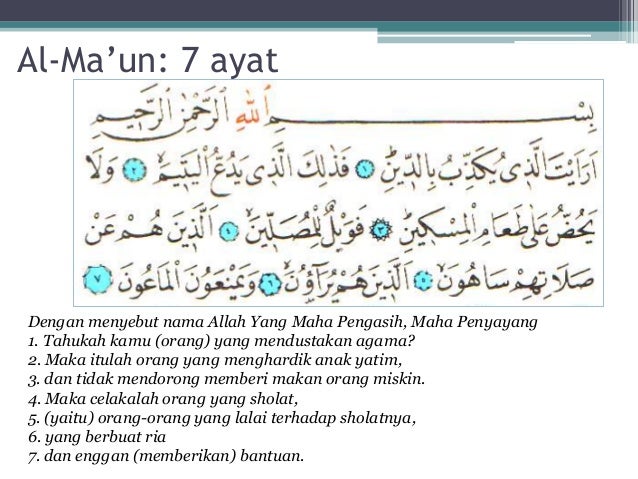 Al-Ma’un: 7 ayat
بِسْــــــــمِ اللّٰهِ الرَّحْمٰنِ الرَّحِيْمِ
اَرَاَيْتَ الَّذِيْ يُكَذِّبُ بِالدِّيْنِۗ ۝١ فَذٰلِكَ الَّذِيْ يَدُعُّ الْيَتِيْمَۙ ۝٢ وَلَا
يَحُضُّ عَلٰى طَعَامِ الْمِسْكِيْنِۗ ۝٣ فَوَيْلٌ لِّلْمُصَلِّيْنَۙ ۝٤ الَّذِيْنَ هُمْ عَنْ
صَلَاتِهِمْ سَاهُوْنَۙ ۝٥ الَّذِيْنَ هُمْ يُرَاۤءُوْنَۙ ۝٦ وَيَمْنَعُوْنَ الْمَاعُوْنَ ۝٧
Dengan menyebut nama Allah Yang Maha Pengasih, Maha Penyayang
1. Tahukah kamu (orang) yang mendustakan agama?
2. Maka itulah orang yang menghardik anak yatim,
3. dan tidak mendorong memberi makan orang miskin.
4. Maka celakalah orang yang sholat,
5. (yaitu) orang-orang yang lalai terhadap sholatnya,
6. yang berbuat ria
7. dan enggan (memberikan) bantuan.